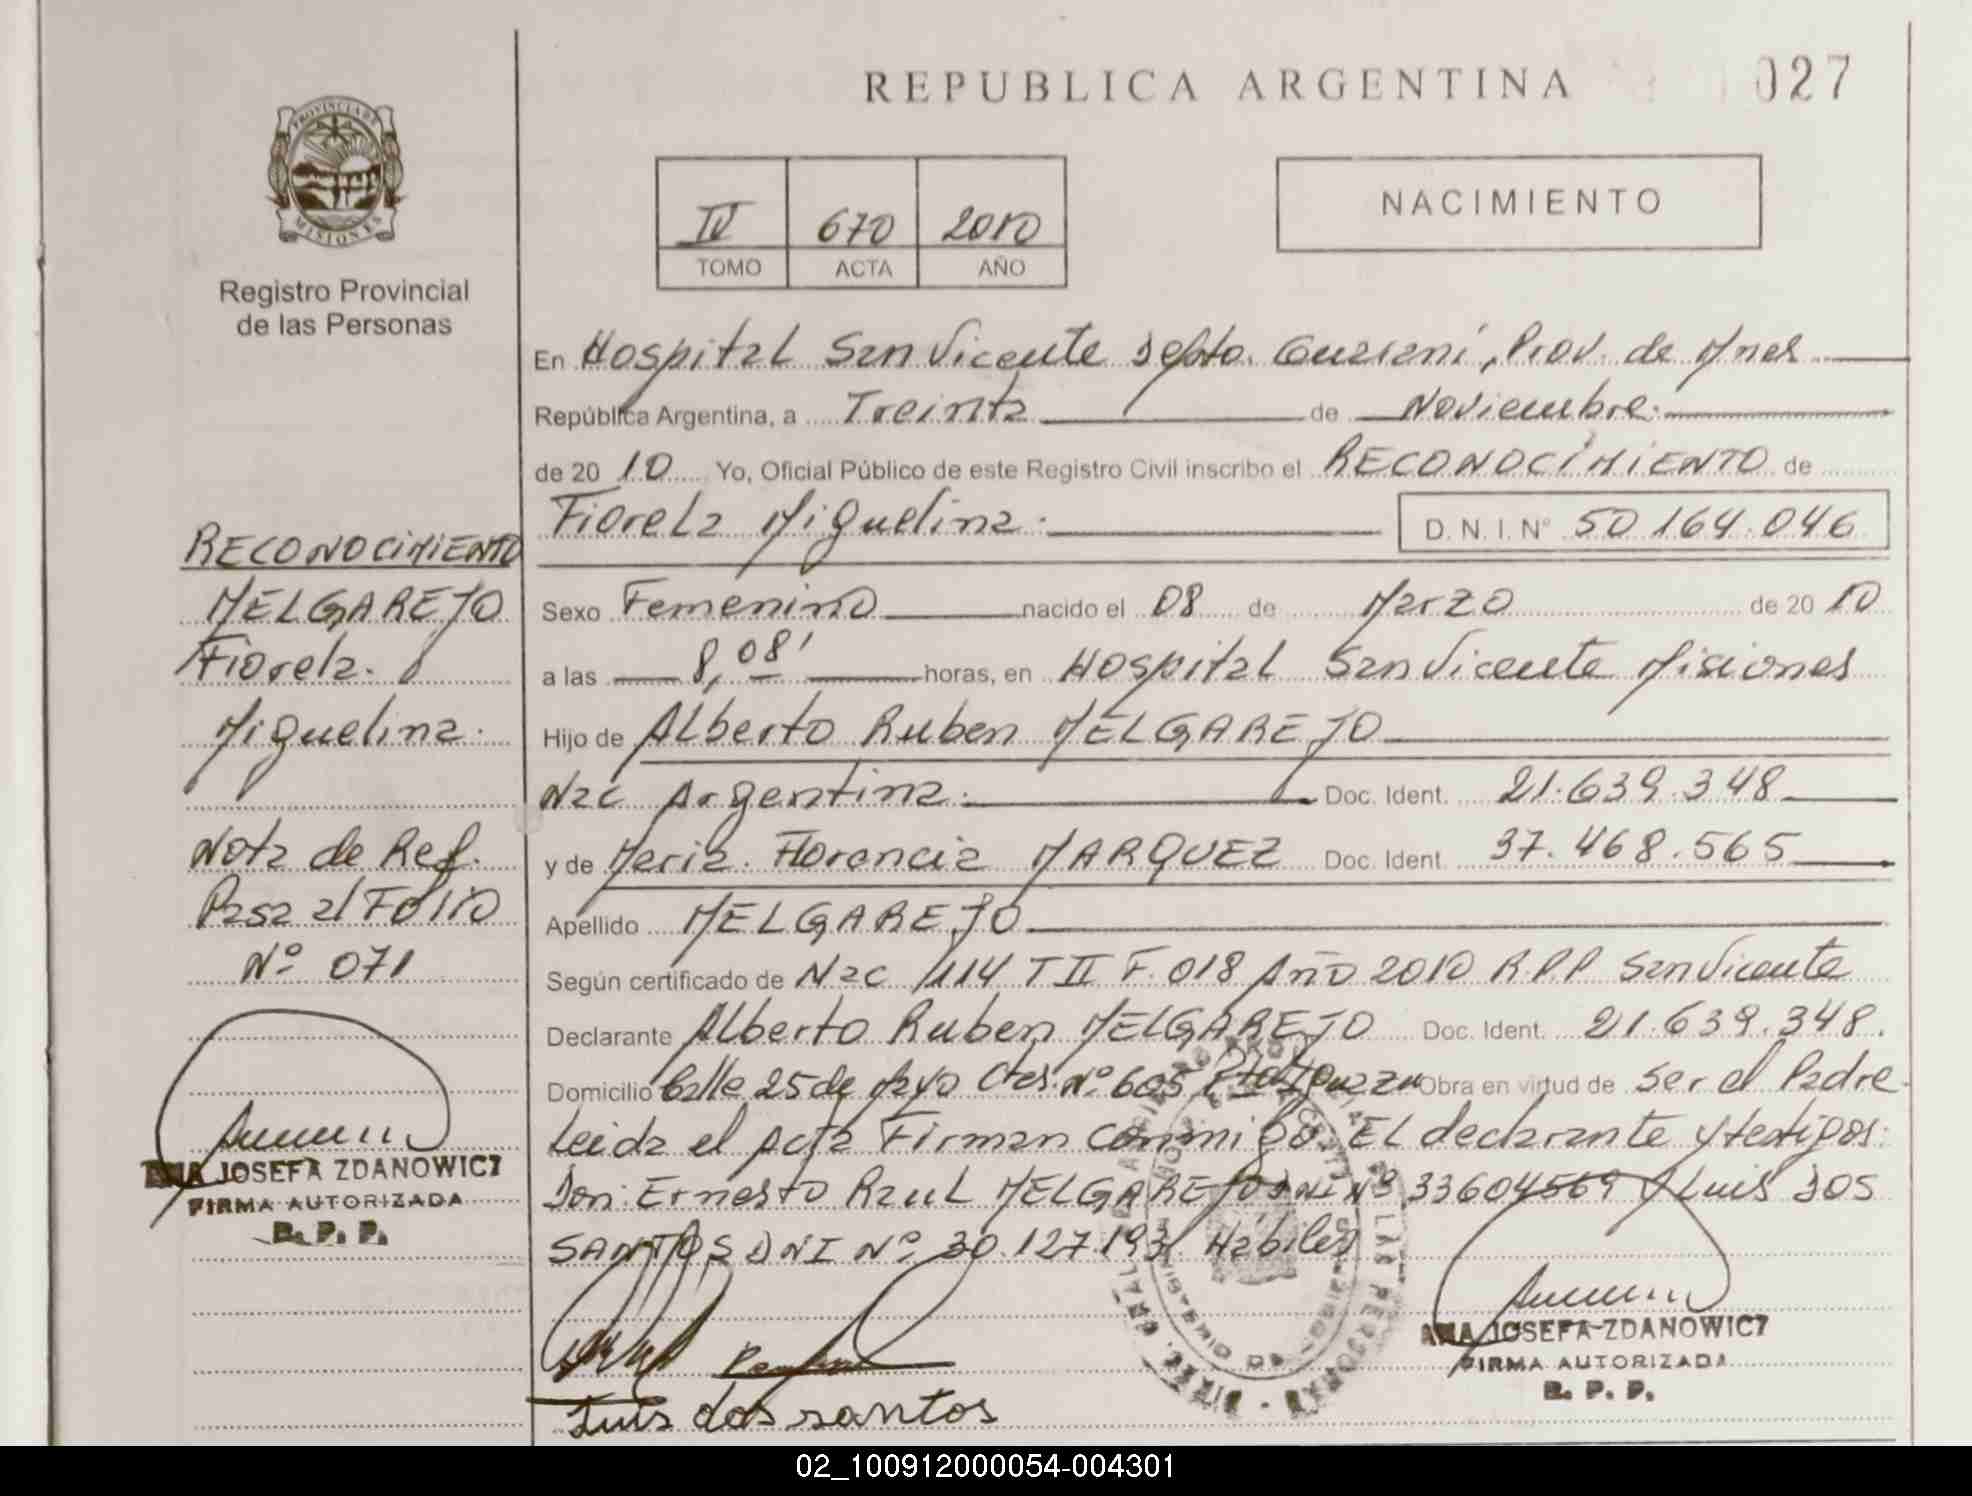 REPUBLICA ARGENTINA
027
PROVINCIA DE
MISIONES
Registro Provincial
de las Personas
IV 670 2010
TOMO ACTA AÑO
NACIMIENTO
En Hospital San Vicente Depto. Guaraní, Prov. de Mnes
República Argentina, a Treinta de Noviembre.
de 2010 Yo, Oficial Público de este Registro Civil inscribo el RECONOCIMIENTO de
Fiorela Miguelina. D. N. I. N° 50 164.046
Sexo Femenino nacido el 08 de Marzo de 2010
a las 8,08' horas, en Hospital San Vicente Misiones
Hijo de Alberto Ruben MELGAREJO
Nac Argentina. Doc. Ident. 21.639.348
y de Maria Florencia MARQUEZ Doc. Ident. 37.468.565
Apellido MELGAREJO
Según certificado de Nac 114 T II F. 018 Año 2010 R.P.P San Vicente
Declarante Alberto Ruben MELGAREJO Doc. Ident. 21.639.348.
Domicilio Calle 25 de Mayo Ctes. N° 605 Obra en virtud de Ser el Padre
Leida el Acta Firman conmigo EL declarante y testigos:
Don: Ernesto Raul MELGAREJO DNI Nº 33604569 y Luis DOS
SANTOS DNI Nº 30.127.193 Hábiles
Luis dos santos
RECONOCIMIENTO
MELGAREJO
Fiorela.
Miguelina.
Nota de Ref.
Pasa al Folio
Nº 071
ANA JOSEFA ZDANOWICZ
FIRMA AUTORIZADA
R. P. P.
ANA JOSEFA ZDANOWICZ
FIRMA AUTORIZADA
R. P. P.
02_100912000054-004301